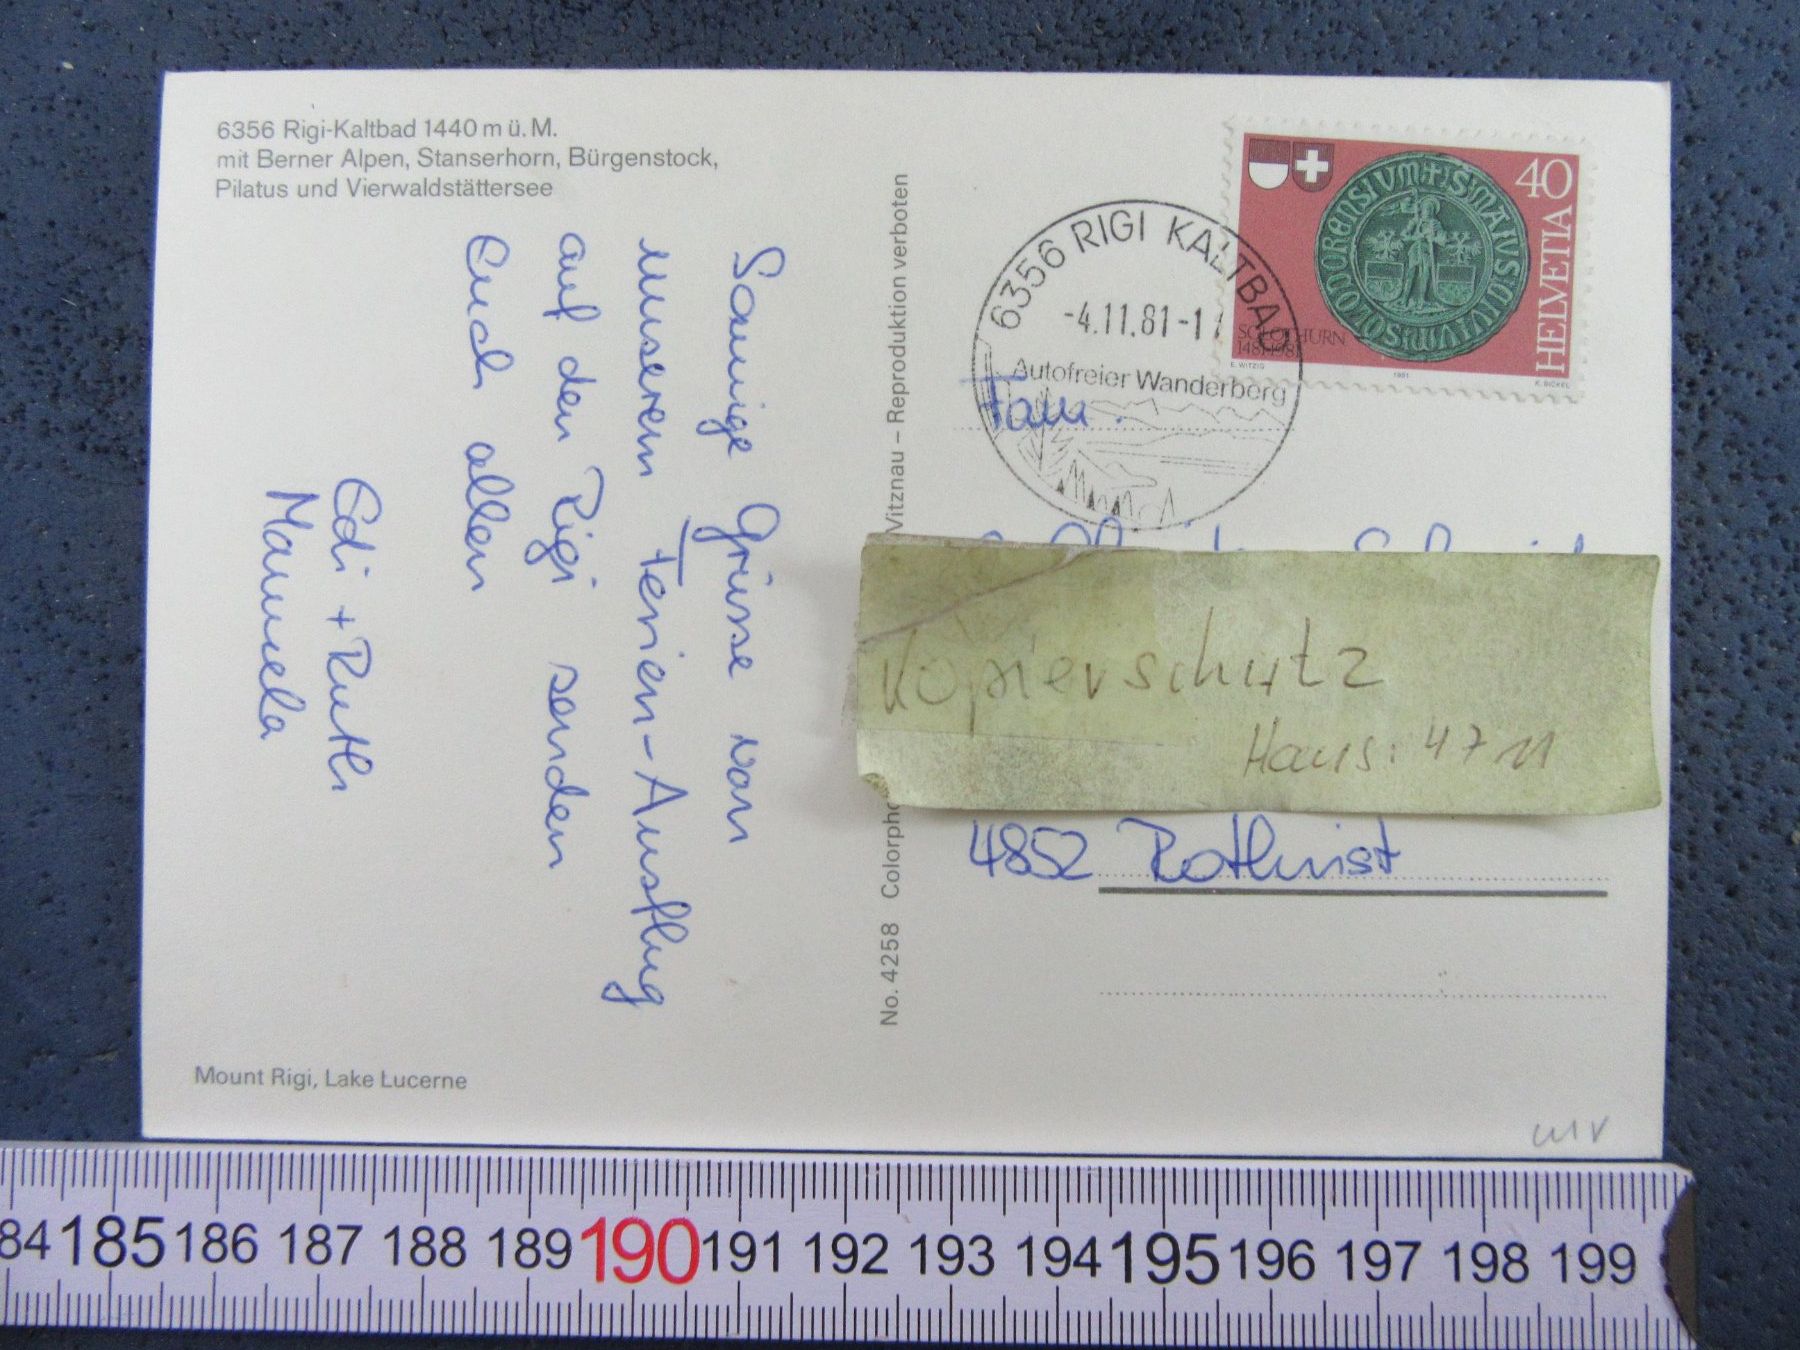 6356 Rigi-Kaltbad 1440 m ü. M.
mit Berner Alpen, Stanserhorn, Bürgenstock,
Pilatus und Vierwaldstättersee
Sonnige Grüsse von
unserem Ferien-Ausflug
auf den Rigi senden
Euch allen
Edi + Ruth
Manuela
Mount Rigi, Lake Lucerne
No. 4258 Colorpho
Vitznau – Reproduktion verboten
6356 RIGI KALTBAD
-4.11.81-1
Autofreier Wanderberg
40
HELVETIA
SOLOTHURN
1481 1981
E. WITZIG
1981
K. BICKEL
Fam.
Kopierschutz
Haus: 4711
4852 Rothrist
184 185 186 187 188 189 190 191 192 193 194 195 196 197 198 199